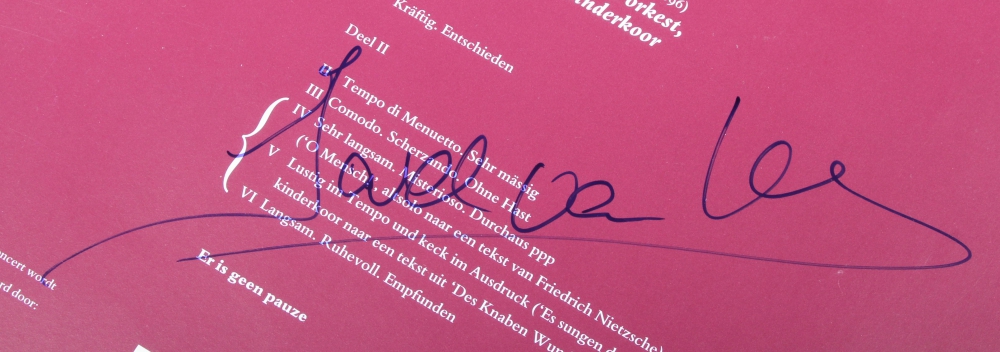 96)
orkest,
inderkoor
Kräftig. Entschieden
Deel II
II Tempo di Menuetto. Sehr mässig
III Comodo. Scherzando. Ohne Hast
IV Sehr langsam. Misterioso. Durchaus ppp
('O Mensch!', altsolo naar een tekst van Friedrich Nietzsche)
V Lustig im Tempo und keck im Ausdruck ('Es sungen d
kinderkoor naar een tekst uit 'Des Knaben Wun
VI Langsam. Ruhevoll. Empfunden
Er is geen pauze
oncert wordt
rd door: